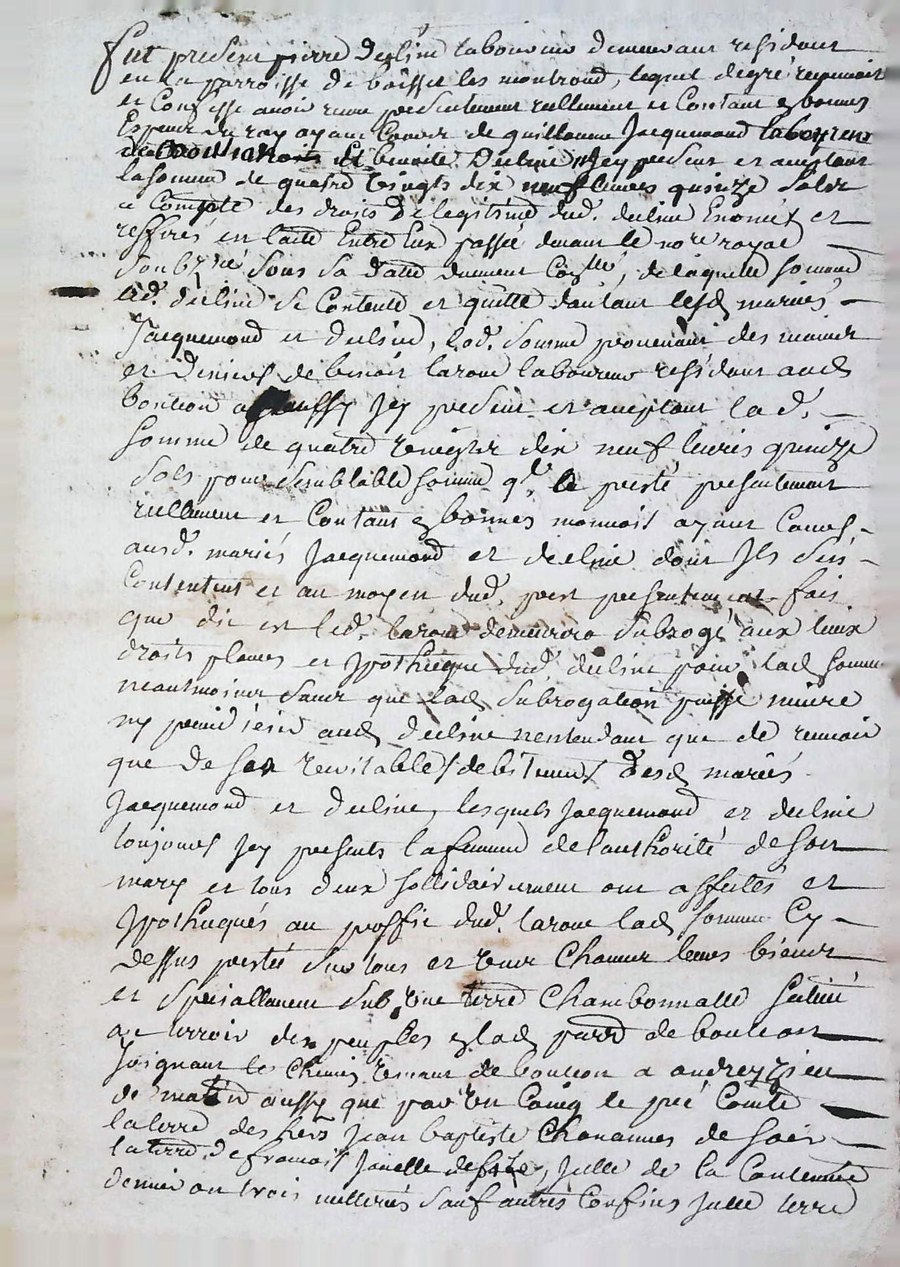 fut present pierre decline laboureur demeurant residant
en la parroisse de boisset les montrond, lequel degré reconnoit
et Confesse avoir receu presentement reellement et Contant en bonnes
Especes du roy ayant Cours de guillaume Jacquemond laboureur
de et benoite decline Icy present et aceptant
la somme de quatre vingts dix neuf livres quinze solds
a Compte des droits de legitime dud. decline Enoncés et
reffirés en lacte Entre Eux passé devant le nore royal
soubzné sous sa datte duement Conllé, de laquelle somme
led. decline se Contente et quitte dautant lesd mariés
Jacquemond et decline, lad. somme provenant des mains
et deniers de benoit laroue laboureur residant aud
bouteon aussy Icy present et aceptant lad.
somme de quatre vingts dix neuf livres quinze
sols pour semblable somme ql. a presté presentement
reellement et Contant en bonnes monnois ayant Cours
ausd. mariés Jacquemond et decline dont Ils sen
Contentent et au moyen dud. prest presentement fait
que dit est led. laroue demeurera subrogé aux lieux
droits places et ypotheque dud. decline pour lad somme
neantmoins sans que lad subrogation puisse nuire
ny prejudicier aud decline nentendant que de recevoir
que de ses veritables / debiteurs / desd mariés
Jacquemond et decline, lesquels Jacquemond et decline
toujours Icy presents la femme de lauthorité de son
mary et tous deux sollidairement ont affectés et
ypothequés au proffit dud. laroue lad somme Cy
dessus prestée sur tous et un chacuns leurs biens
et speciallement sub une terre Chambonnalle scituée
au terroir des peuples en lad parr de bouteon
Joignant le chemin tenant de bouteon a andrezieu
de matin aussy que par un Coing le pré Comte
la terre des hers Jean baptiste Chavannes de soir
la terre de francois Janelle de bize, Icelle de la Contenue
demie ou trois metterés sauf autres Confins Icelle terre